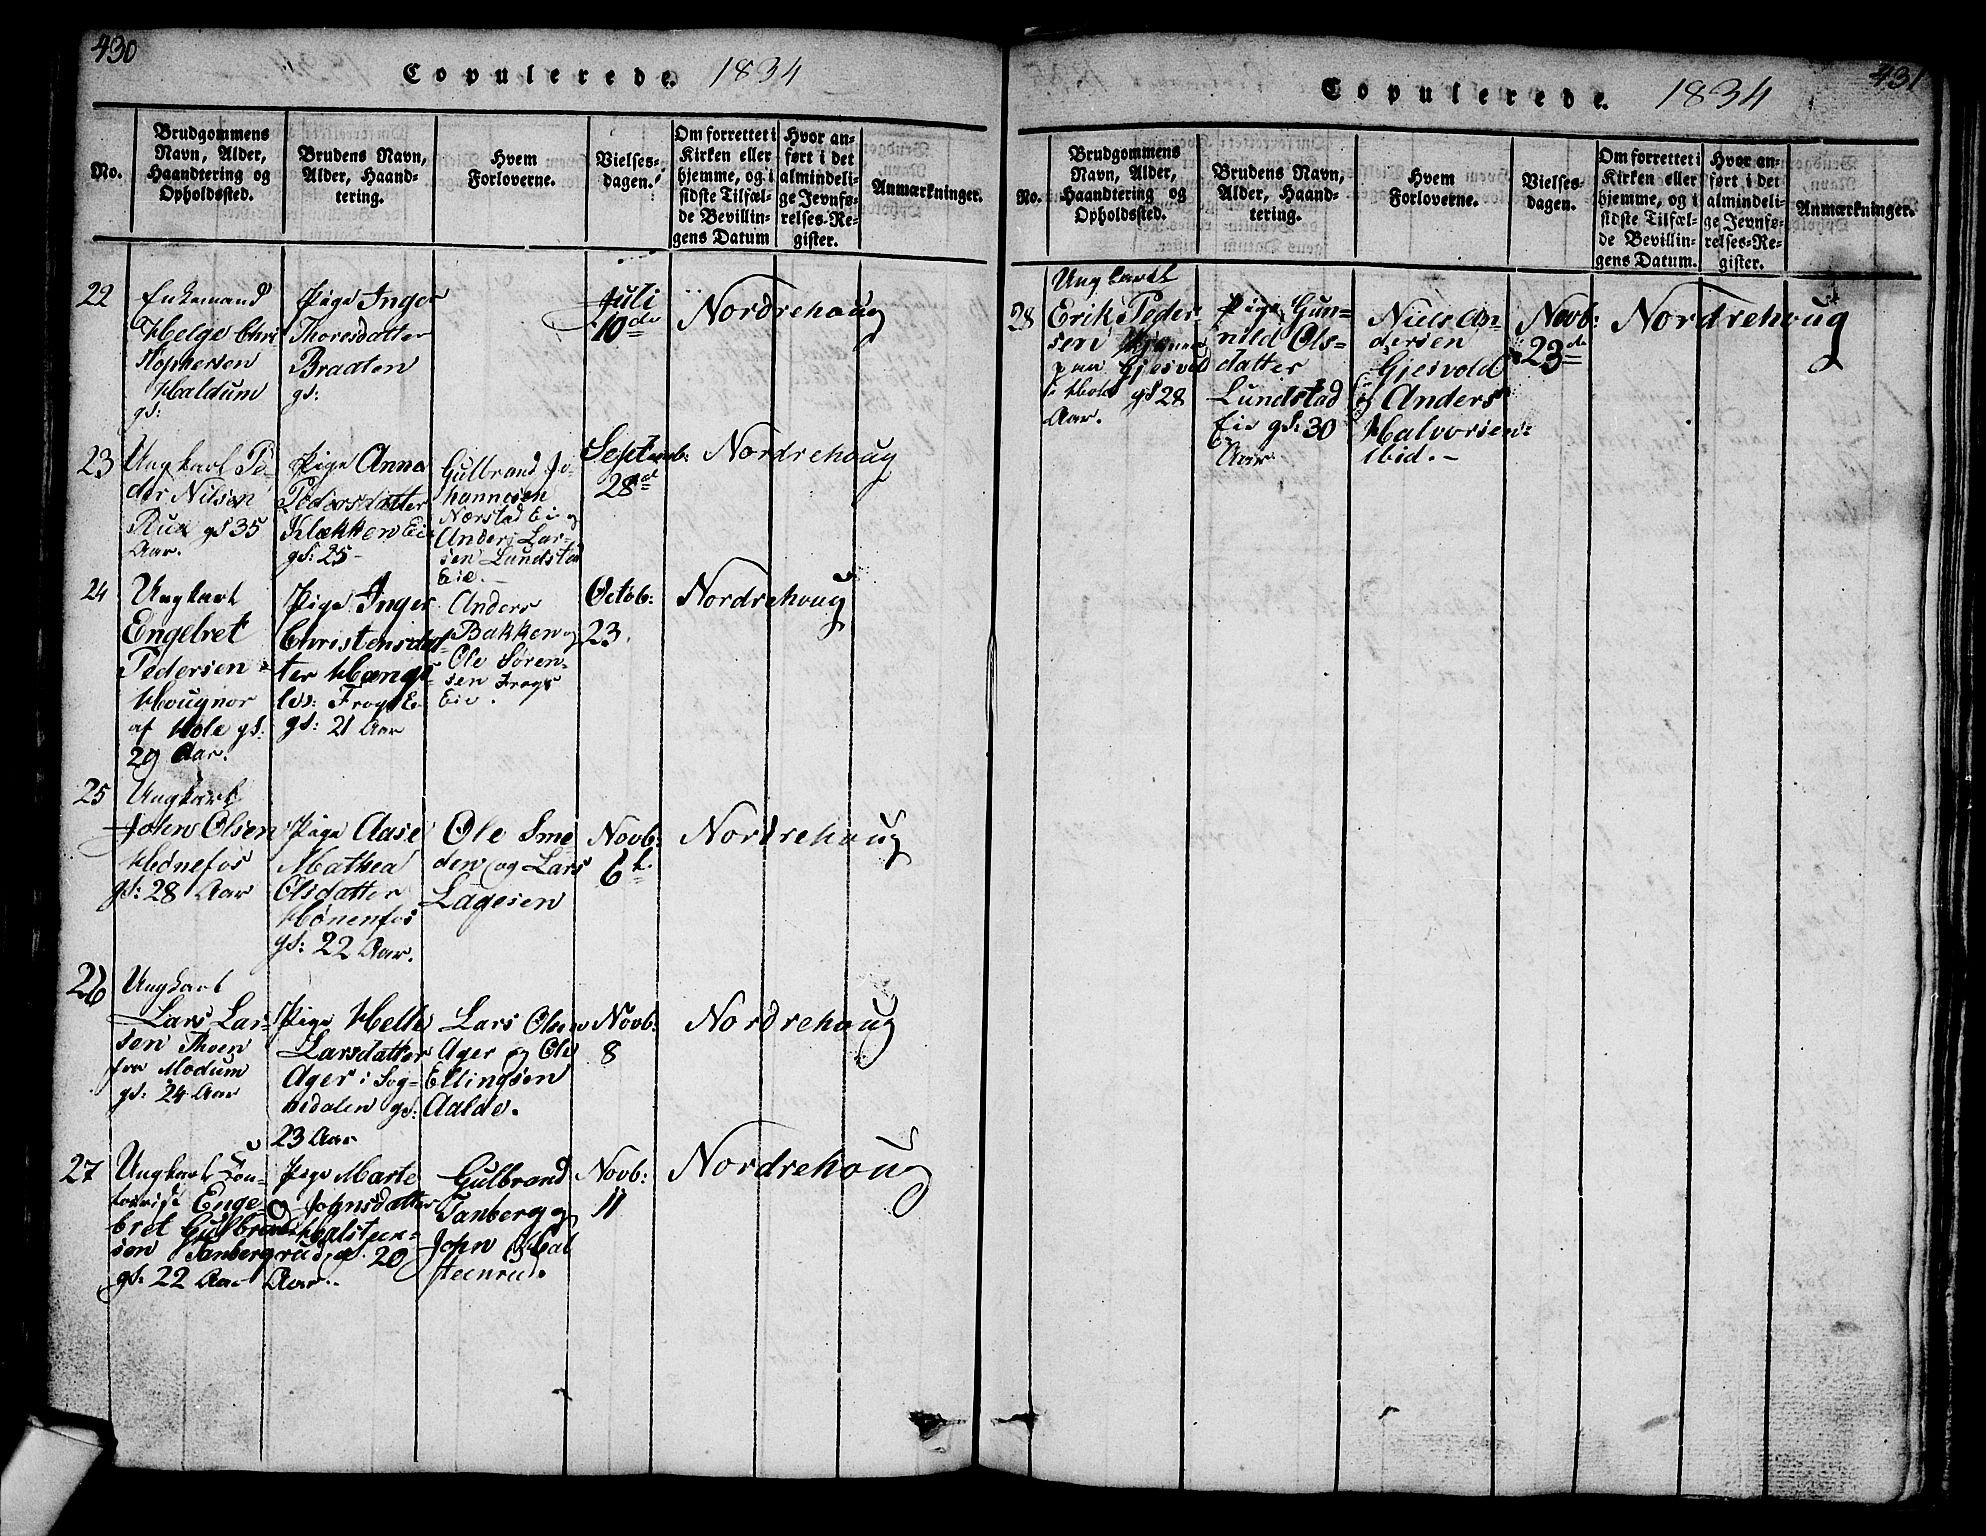 430
Copulerede. 1834
No.
Brudgommens
Navn, Alder,
Haandtering og
Opholdssted.
Brudens Navn,
Alder, Haand-
tering.
Hvem
Forloverne.
Vielses-
dagen.
Om forrettet i
Kirken eller
hjemme, og i
sidste Tilfæl-
de Bevillin-
gens Datum
Hvor an-
ført i det
almindeli-
ge Jevnfø-
relses-Re-
gister.
Anmærkninger.
22
Enkemand
Helge Chri
stophersen
Haldum
gl:
Pige Inger
Thoresdatter
Braaten
gl:
Juli
10de
Nordrehoug
23
Ungkarl Pe-
der Nilsen
gl 35
Aar.
Pige Anna
Pedersdatter
Klækken Eie
gl: 25
Gulbrand Jo-
hannesen
Nærstad Eie og
Anders Lar-
sen Lundstad
Eie.
Septemb:
28de
Nordrehoug
24
Ungkarl
Engelret
Pedersen
Hougnor
af Hole gl:
29 Aar.
Pige Inger
Christensdat-
ter
Frogs Ei
gl: 21 Aar
Anders
Bakken og
Ole Søren-
sen Frogs
Eie.
Octob:
23.
Nordrehoug
25
Ungkarl
John Olsen
Hønefos
gl: 28 Aar
Pige Aase
Mathea
Olsdatter
Hønenfos
gl: 22 Aar.
Ole Sme
den og Lars
Lagesen
Novb:
6te
Nordrehoug
26
Ungkarl
Lars Lar-
sen Thoen
fra Modum
gl: 24 Aar
Pige Helle
Larsdatter
Ager i Sog-
nedalen gl:
23 Aar
Lars Olsen
Ager og Ole
Ellingsen
Aalde.
Novb:
8
Nordrehoug
27
Ungkarl
Enge
bret Gulbrand
sen Tanbergrud
gl: 22 Aar
Pige Marte
Johnsdatter
Halsteen-
gl. 20
Aar.
Gulbrand
Tanberg og
John Hal
steenrud.
Novb:
11
Nordrehoug
431
Copulerede. 1834
No.
Brudgommens
Navn, Alder,
Haandtering og
Opholdssted.
Brudens Navn,
Alder, Haand-
tering.
Hvem
Forloverne.
Vielses-
dagen.
Om forrettet i
Kirken eller
hjemme, og i
sidste Tilfæl-
de Bevillin-
gens Datum.
Hvor an-
ført i det
almindeli-
ge Jevnfø-
relses-Re-
gister.
Anmærkninger.
28
Ungkarl
Erik Peder-
sen
paa Gjesvold
i Hole gl 28
Aar.
Pige Gun-
nild Ols-
datter
Lundstad
Eie gl: 30
Aar
Niels An-
dersen
Gjesvold
og Anders
Halvorsen
ibid.
Novb:
23de
Nordrehoug